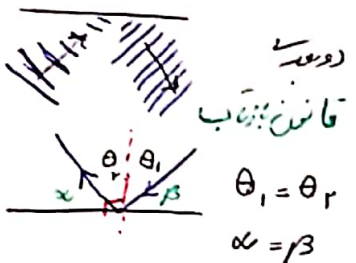 دو بعدی
قانون بازتاب
θr θ1
α β
θ1 = θr
α = β